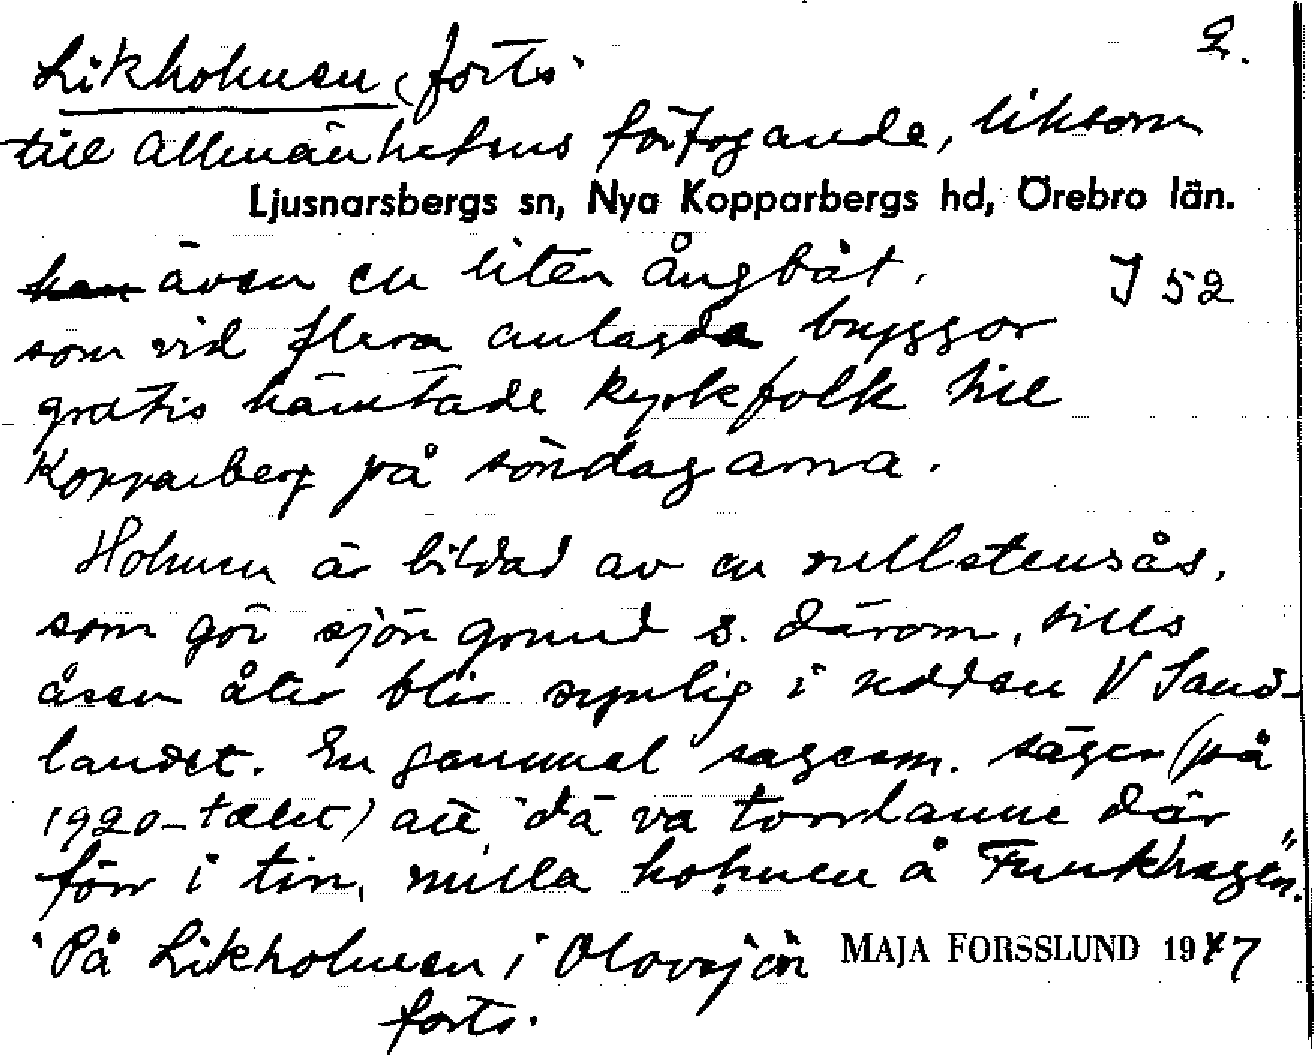 2.
Likholmen, forts.
till Allmänhetens förfogande, liksom
Ljusnarsbergs sn, Nya Kopparbergs hd, Örebro län.
han även en liten ångbåt,
J 52
som vid flera anlagda bryggor
gratis hämtade kyrkfolk till
Kopparberg på söndagarna.
Holmen är bildad av en rullstensås,
som gör sjön grund s. därom, tills
åsen åter blir synlig i udden V Sand-
landet. En gammal sagesm. säger (på
1920-talet) att "dä va torrlanne där
förr i tin, milla holmen å Funkhagen".
"På Likholmen i Olovsjön
MAJA FORSSLUND 1947
forts.